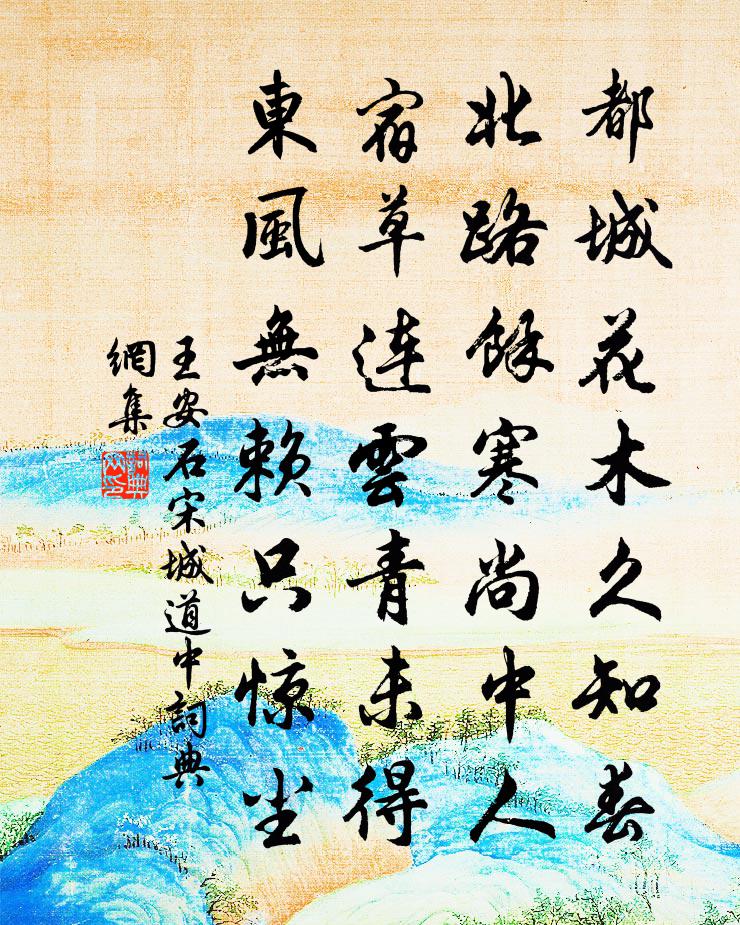 都城花木久知春
北路餘寒尚中人
宿草連雲青未得
東風無賴只惊尘
王安石宋城道中詞典
網集
詞典